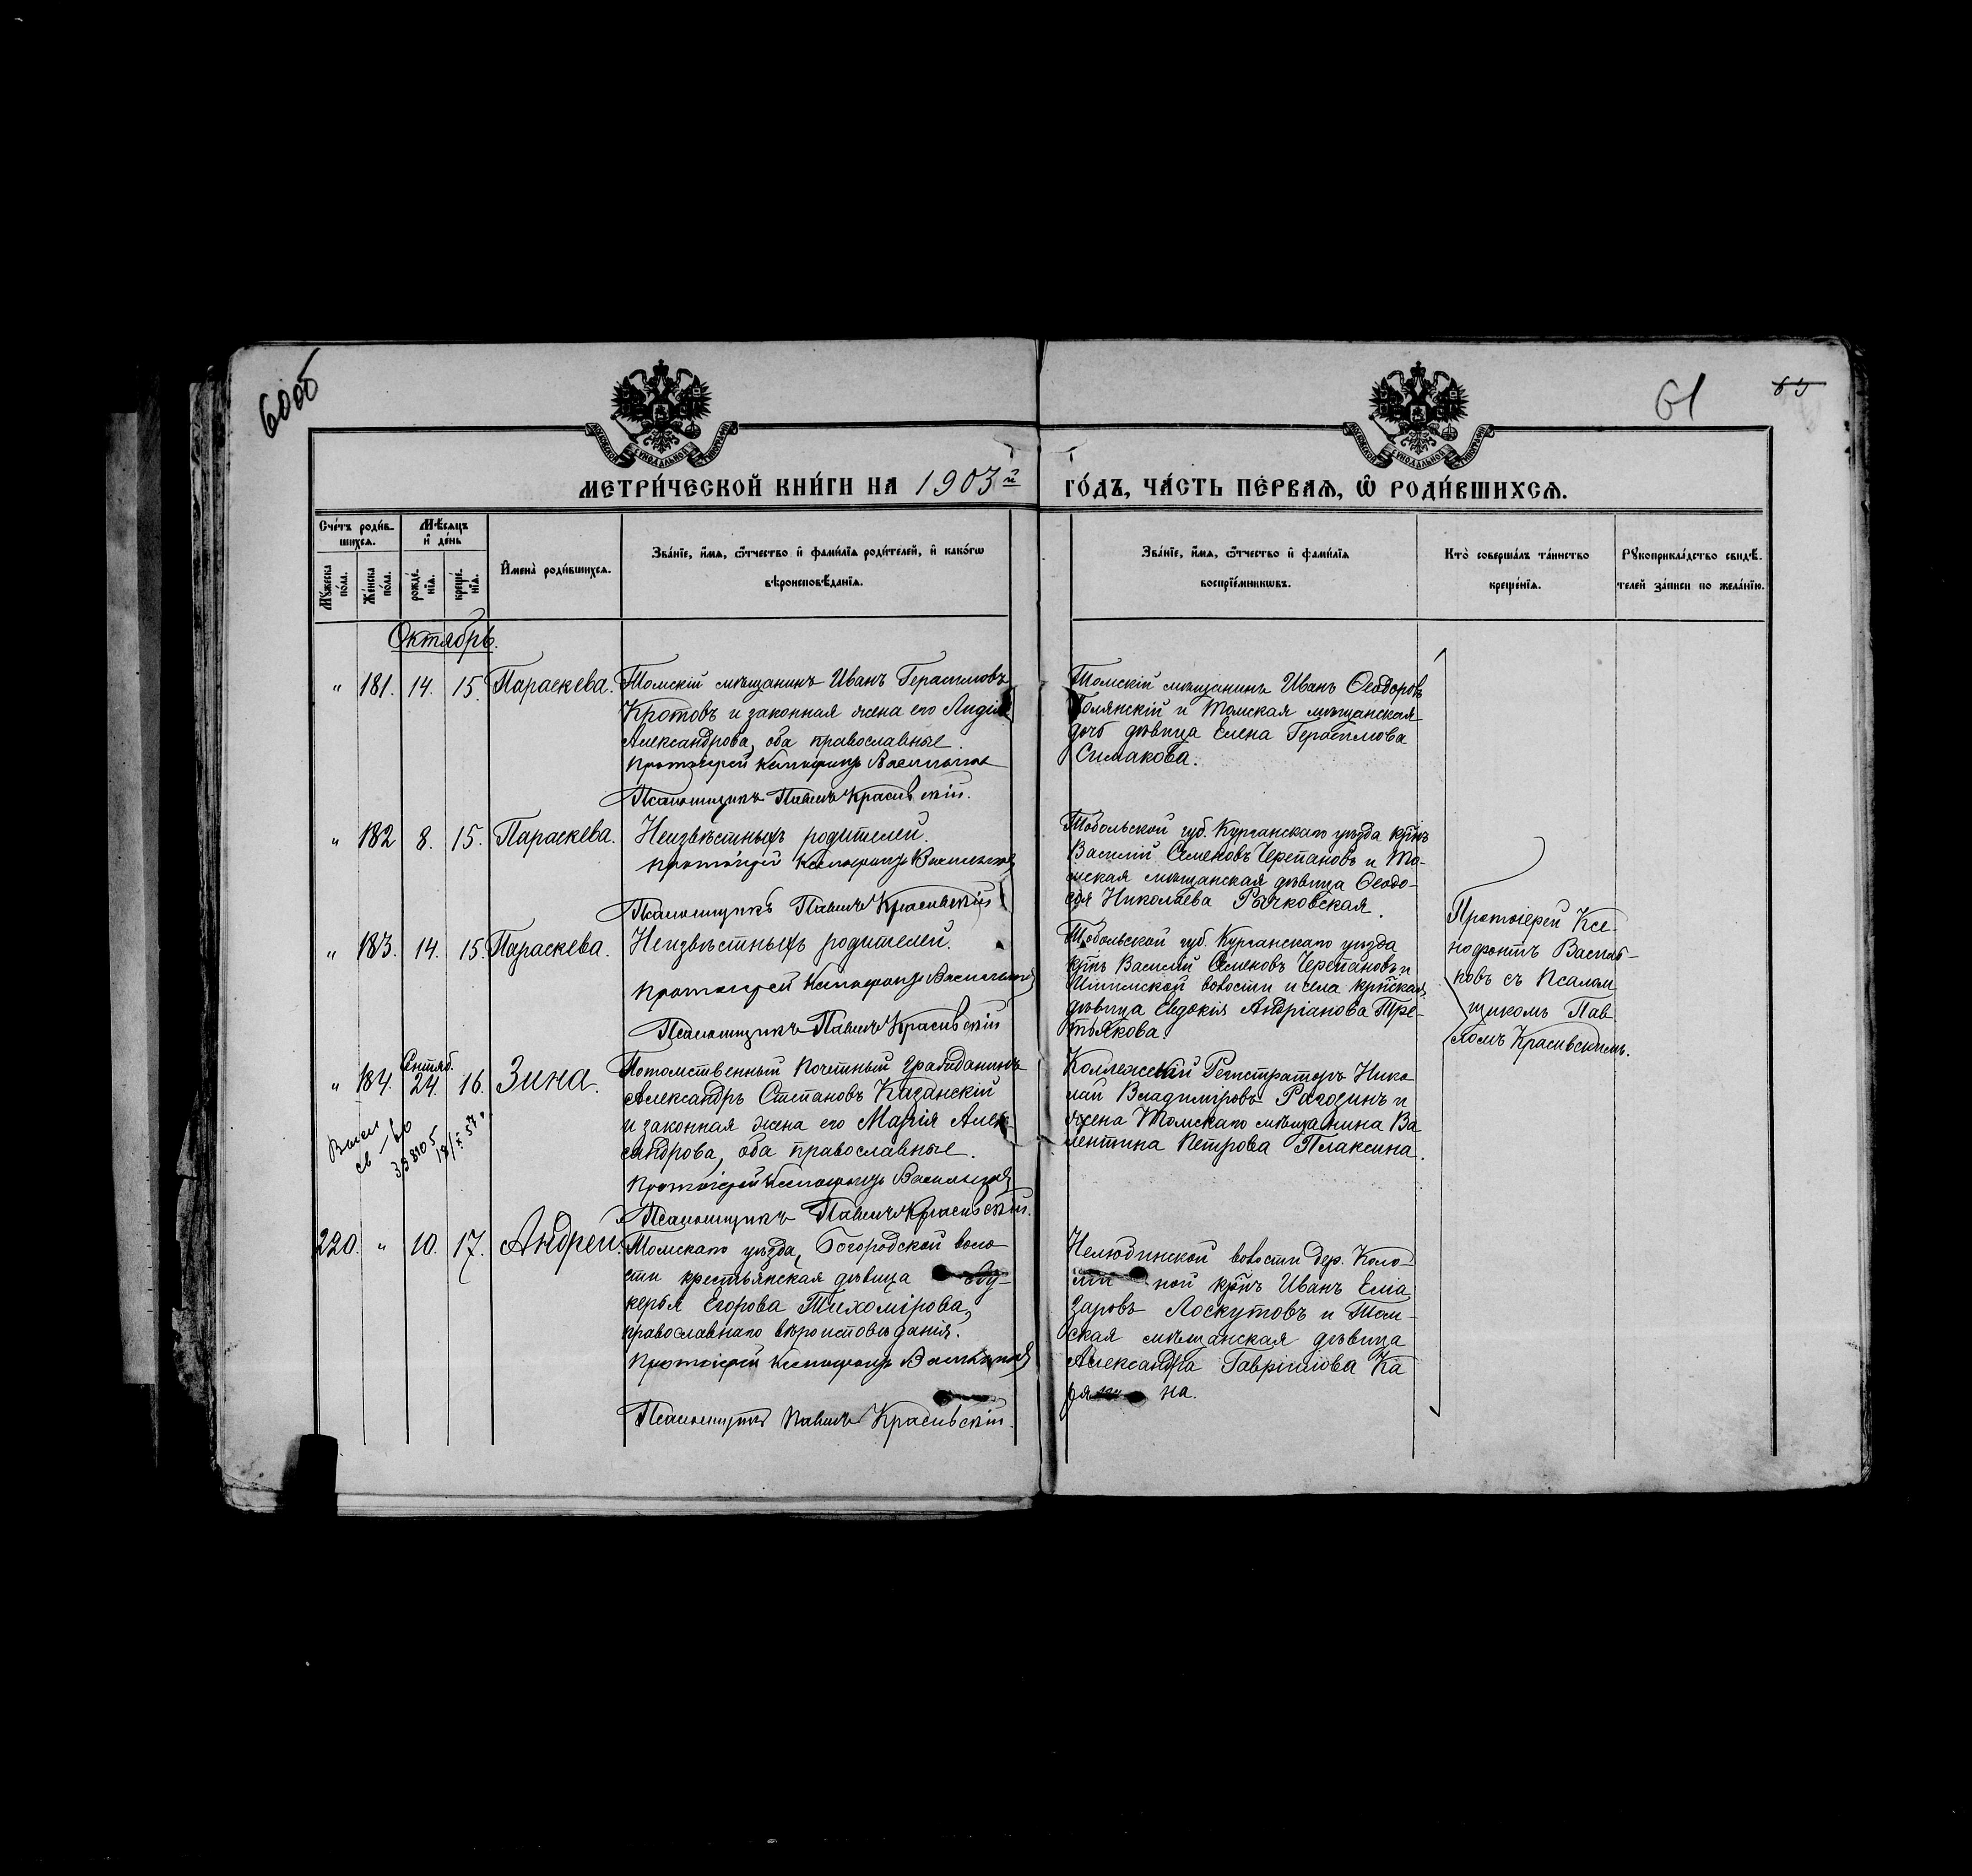 60об
61
МЕТРИ́ЧЕСКОЙ КНИ́ГИ НА 1903й ГО́ДЪ, ЧА́СТЬ ПЕ́РВАЯ, Ѽ РОДИ́ВШИХСЯ.
Сче́тъ роди́в-
шихся.
Мѣ́сяцъ
и҆ де́нь
Мꙋ́жеска по́ла.
Же́нска по́ла.
рожде́-нїя.
креще́-нїя.
И҆мена̀ роди́вшихся.
Зва́нїе, и҆́мя, ѻ҆́тчество и҆ фами́лїѧ роди́телей, и҆ како́гѡ
вѣроисповѣ́данїя.
Зва́нїе, и҆́мя, ѻ҆́тчество и҆ фами́лїѧ
воспрїе́мникѡвъ.
Кто̀ соверша́лъ та́инство
креще́нїя.
Рꙋкоприкла́дство свидѣ́-
телей за́писи по жела́нїю.
Октябрь.
" 181. 14. 15. Параскева.
Томскій мѣщанинъ Иванъ Герасимовъ
Кротовъ и законная жена его Лидія
Александрова, оба православные.
Протоіерей Ксенофонтъ Васильковъ
Псаломщикъ Павелъ Красивскій.
Томскій мѣщанинъ Иванъ Ѳеодоровъ
Голянскій и Томская мѣщанская
дочь дѣвица Елена Герасимова
Симакова.
" 182 8. 15. Параскева.
Неизвѣстныхъ родителей.
Протоіерей Ксенофонтъ Васильковъ
Псаломщикъ Павелъ Красивскій
Тобольской губ. Курганскаго уѣзда кр̃нъ
Василій Семеновъ Черепановъ и То-
мская мѣщанская дѣвица Ѳеодо-
сія Николаева Рачковская.
" 183. 14. 15. Параскева.
Неизвѣстныхъ родителей.
Протоіерей Ксенофонтъ Васильковъ
Псаломщикъ Павелъ Красивскій
Тобольской губ. Курганскаго уѣзда
кр̃нъ Василій Семеновъ Черепановъ и
волости и села кр̃нская
дѣвица Евдокія Андріанова Тре-
тьякова.
" 184. Сентяб. 24. 16. Зина.
Потомственный Почетный Гражданинъ
Александръ Степановъ Казанскій
и законная жена его Марія Алек-
сандрова, оба православные.
Протоіерей Ксенофонтъ Васильковъ
Псаломщикъ Павелъ Красивскій.
Коллежскій Регистраторъ Нико
лай Владиміровъ Рагозинъ и
жена Томскаго мѣщанина Ва
лентина Петрова Плаксина.
св-во
220. " 10. 17. Андрей.
Томскаго уѣзда, Богородской воло
сти крестьянская дѣвица
Егорова Тихомірова,
православнаго вѣроисповѣданія.
Протоіерей Ксенофонтъ Васильковъ
Псаломщикъ Павелъ Красивскій.
Нелюбинской волости дер. Коло-
ной кр̃нъ Иванъ Елиа
заровъ Лоскутовъ и Том-
ская мѣщанская дѣвица
Александра Гавріилова Ка
на.
Протоіерей Ксе-
нофонтъ Василь-
ковъ съ Псалом
щикомъ Пав
ломъ Красивскимъ.